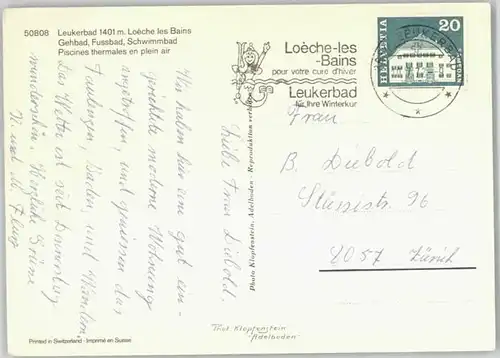 50808 Leukerbad 1401 m. Loèche les Bains
Gehbad, Fussbad, Schwimmbad
Piscines thermales en plein air
Loèche-les
-Bains
pour votre cure d'hiver
Leukerbad
für Ihre Winterkur
HELVETIA 20
LEUKERBAD
Frau
B. Diebold
Stüssistr. 96
8057 Zürich
Liebe Frau Diebold.
Wir haben hier eine gut ein-
gerichtete moderne Wohnung
angetroffen, und geniessen das
Faulenzen, Baden, und Wandern.
Das Wetter ist seit Donnerstag
wunderschön. Herzliche Grüsse
Photo Klopfenstein, Adelboden - Reproduktion verboten
Phot. Klopfenstein
Adelboden
Printed in Switzerland - Imprimé en Suisse